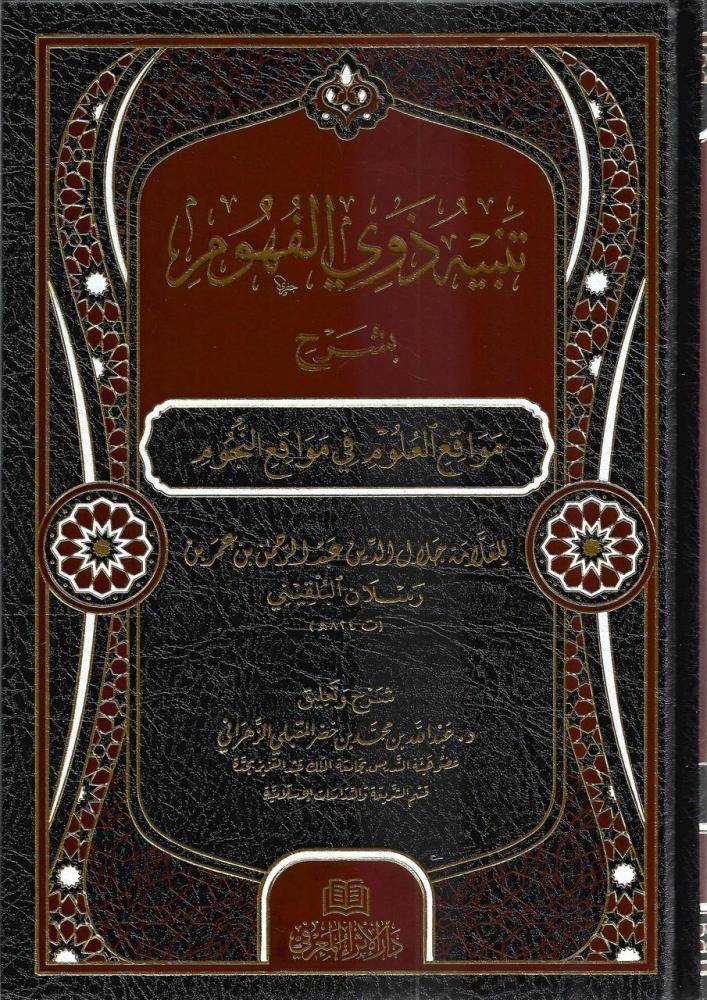 تَنبِيهُ ذَوِي الفُهُومِ
بشَرْحِ
مَوَاقِعِ العُلُومِ فِي مَوَاقِعِ النُّجُومِ
للعلَّامة جلال الدين عبد الرحمن بن عمر بن
رسلان البُلْقِيني
(ت ٨٢٤هـ)
شرح وتعليق
د. عبد الله بن محمد بن خضر المقبلي الزهراني
عضو هيئة التدريس بجامعة الملك عبد العزيز بجدة
قسم الشريعة والدراسات الإسلامية
دار الإثراء المعرفي